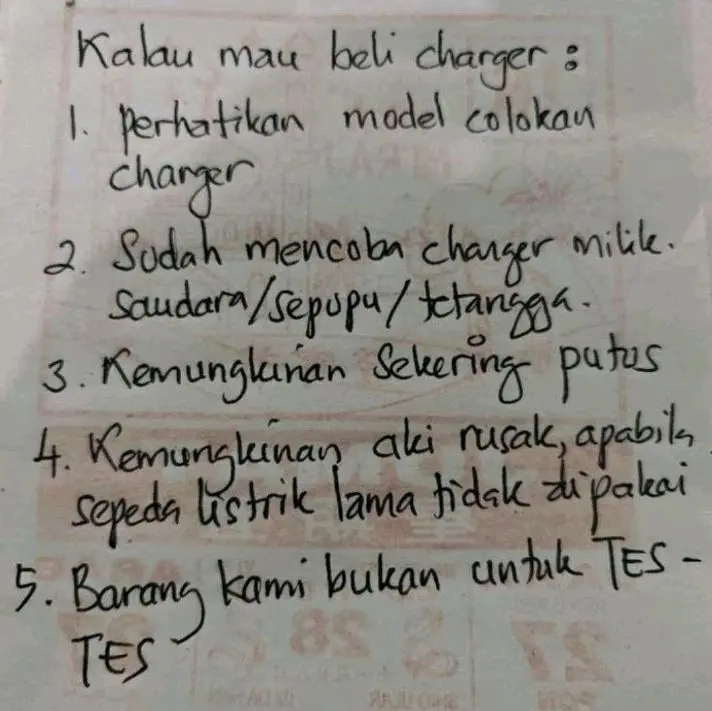 Kalau mau beli charger :
1. Perhatikan model colokan
charger
2. Sudah mencoba charger milik.
Saudara/sepupu/tetangga.
3. Kemungkinan Sekering putus
4. Kemungkinan aki rusak, apabila
sepeda listrik lama tidak dipakai
5. Barang kami bukan untuk TES -
TES
28
27